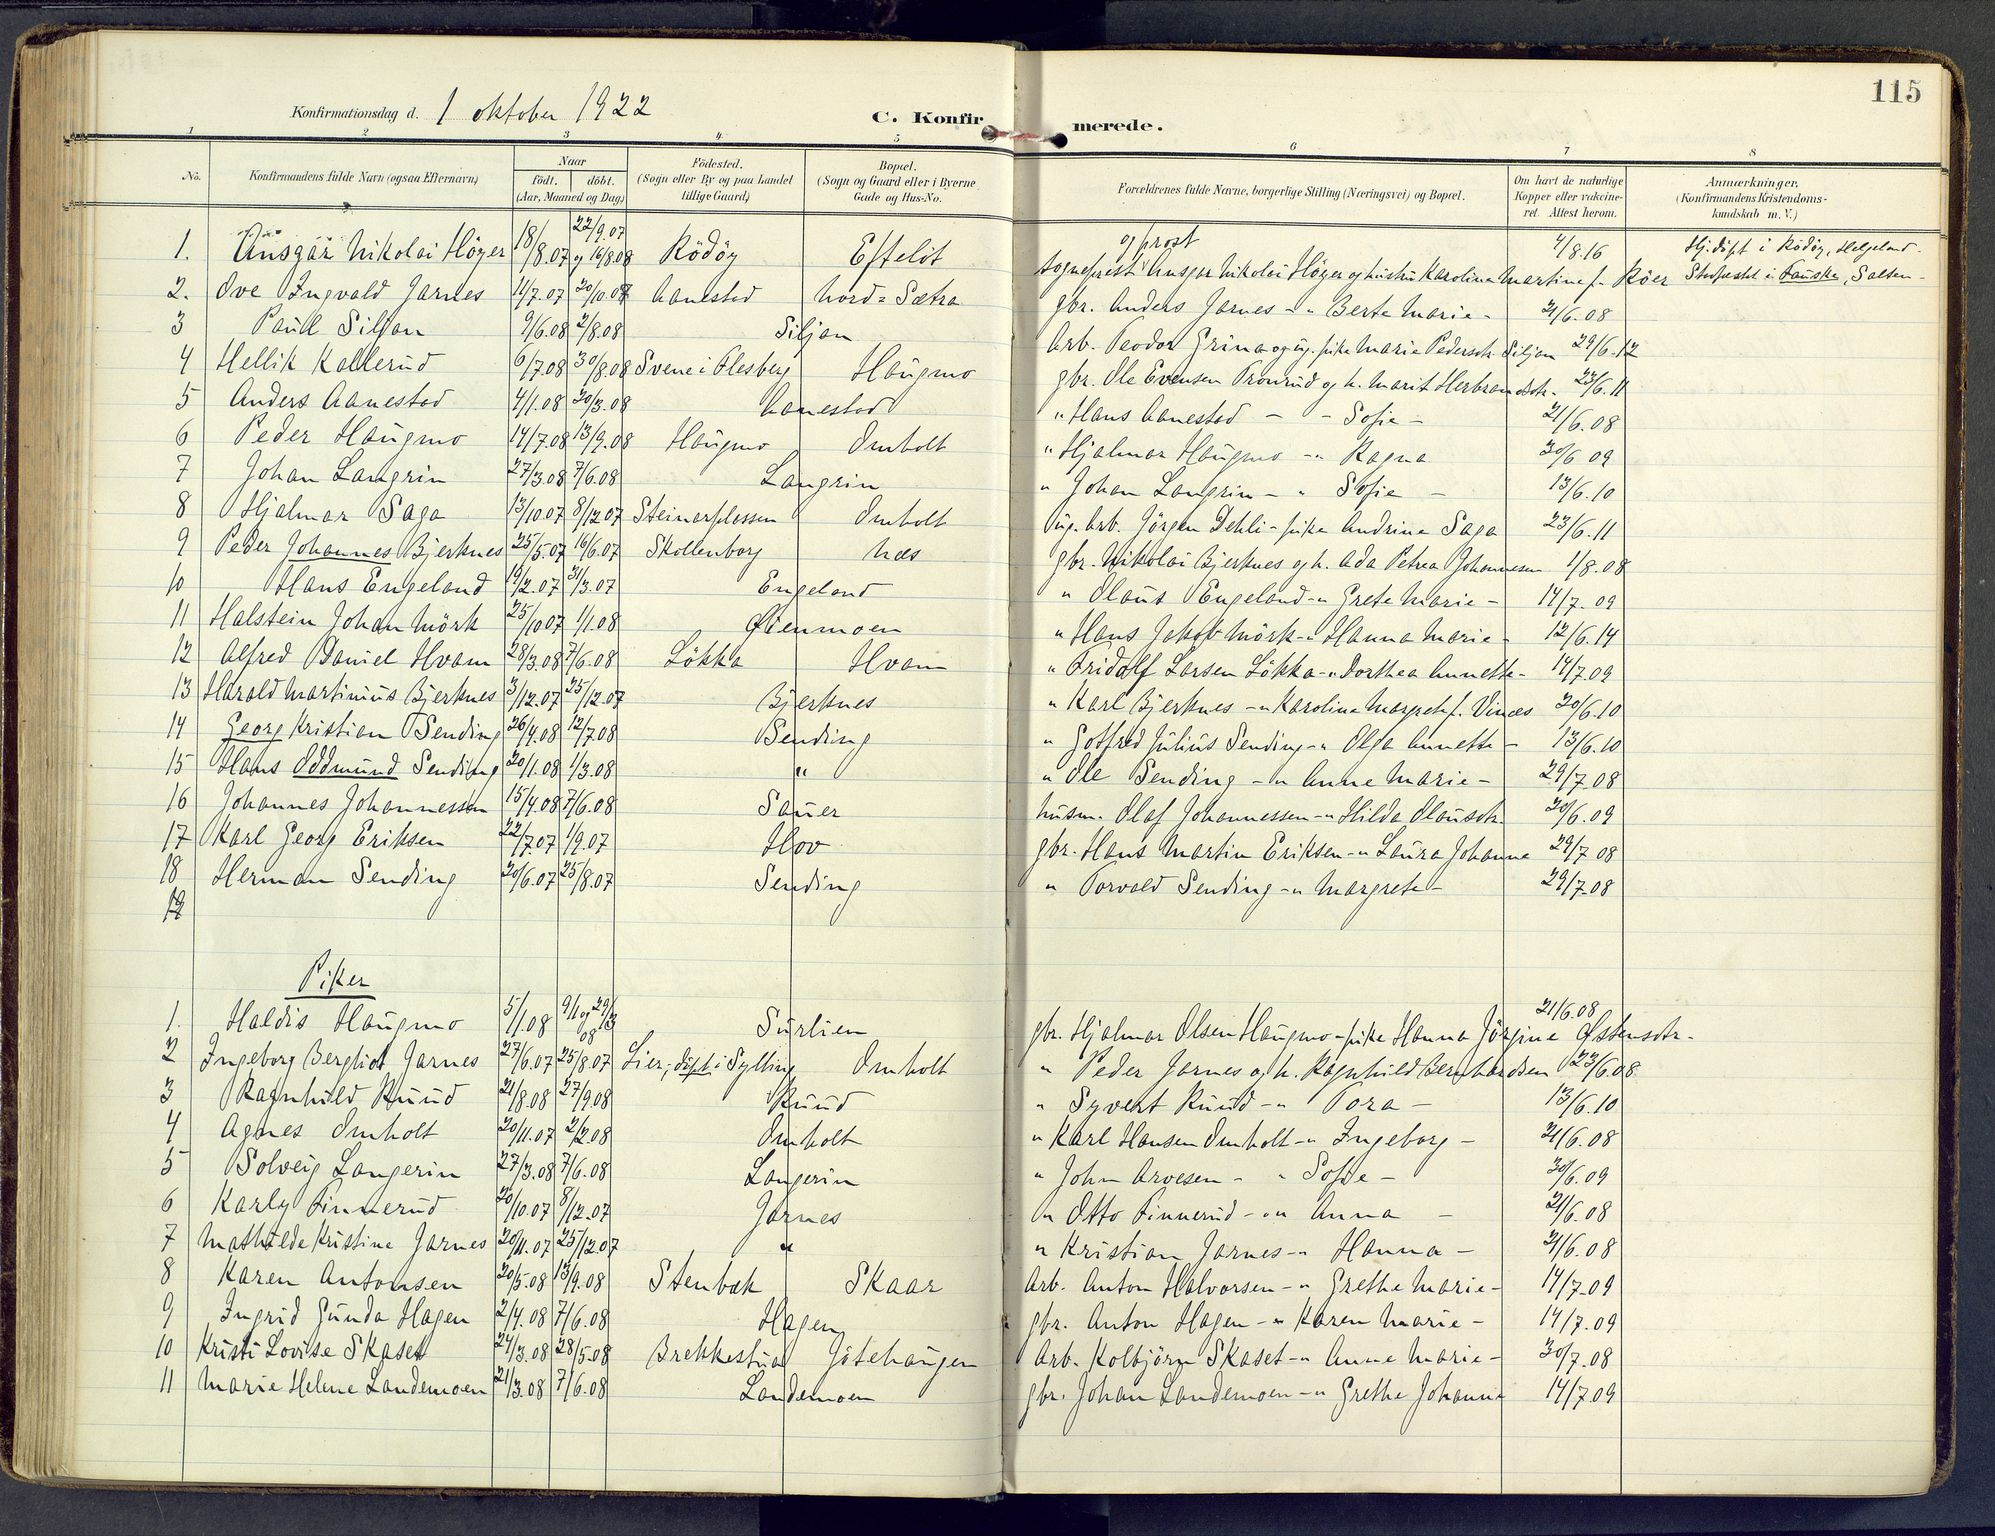 115
Konfirmationsdag d. 1 oktober 1922 C. Konfirmerede.
1 2 3 4 5 6 7 8
No. Konfirmandens fulde Navn (ogsaa Efternavn) Naar født. døbt. (Aar, Maaned og Dag) Födested. (Sogn eller By og paa Landet tillige Gaard) Bopæl. (Sogn og Gaard eller i Byerne Gade og Hus-No. Forældrenes fulde Navne, borgerlige Stilling (Næringsvei) og Bopæl. Om havt de naturlige Kopper eller vakcineret. Attest herom. Anmærkninger. (Konfirmandens Kristendomskundskab m. V.)
1. Ansgar Nikolai Höyer 18/8.07 22/9.07 og 16/8.08 Rödöy Efteløt sogneprest og prost Ansgar Nikolai Höyer og hustru Karoline Martine f. Röer 4/8.16 Hj.døpt i Rödöy, Helgeland. Stadfæstet i Fauske, Salten
2. Ove Ingvald Jarnes 14/7.07 20/10.07 Aanestad Nord-Sætra gbr. Anders Jarnes - " Berte Marie - 21/6.08
3 Paul Siljan 9/6.08 2/8.08 Siljan Arb. Teodor Grina og ug. pike Marie Pedersdtr. Siljan 29/6.12
4 Hellik Kallerud 6/7.08 30/8.08 Svene i Flesberg Haugmo gbr. Ole Evensen Tronrud og h. Marit Herbrandsdtr. 23/6.11
5 Anders Aanestad 4/1.08 20/3.08 Aanestad " Hans Aanestad - - Sofie - 21/6.08
6 Peder Haugmo 14/7.08 13/9.08 Haugmo Omholt " Hjalmar Haugmo - " Ragna 30/6 09
7 Johan Langrin 27/3.08 7/6.08 Langrin " Johan Langrin - " Sofie - 13/6.10
8 Hjalmar Saga 13/10.07 8/12.07 Steinarplassen Omholt ug. arb. Jörgen Dehli - pike Andrine Saga 23/6.11
9 Peder Johannes Bjerknes 25/5.07 16/6.07 Skollenborg Næs gbr. Nikolai Bjerknes og h. Ada Petrea Johannesen 1/8.08
10 Hans Engeland 19/2.07 31/3.07 Engeland " Olaus Engeland - " Grete Marie - 14/7.09
11 Halstein Johan Mörk 25/10.07 1/1.08 Øienmoen " Hans Jakob Mörk - " Hanna Marie - 12/6.14
12 Alfred Daniel Hvam 28/3.08 7/6.08 Lökka Hvam " Fridolf Larsen Lökka - " Dorthea Annette - 14/7.09
13 Harald Martinius Bjerknes 3/12.07 25/12.07 Bjerknes " Karl Bjerknes - " Karoline Margrete f. Vinæs 20/6.10
14 Georg Kristian Sending 26/4.08 12/7.08 Sending " Gotfred Julius Sending - " Olga Annette - 13/6.10
15 Hans Oddmund Sending 20/1.08 1/3.08 " " Ole Sending - " Anne Marie - 29/7.08
16 Johannes Johannessen 15/4.08 7/6.08 Sauer husm. Olaf Johannessen - " Hilda Olausdtr. 30/6.09
17 Karl Georg Eriksen 22/7.07 1/9.07 Hov gbr. Hans Martin Eriksen - " Laura Johanne 29/7 08
18 Herman Sending 20/6.07 25/8.07 Sending " Torvald Sending - " Margrete - 29/7.08
19
Piker
1. Haldis Haugmo 5/1.08 9/1 og 29/3 08 Surlien gbr. Hjalmar Olsen Haugmo - pike Hanna Jörgine Østensdtr. 21/6.08
2 Ingeborg Bergliot Jarnes 27/6.07 25/8.07 Lier, döpt i Sylling Omholt " Peder Jarnes og h. Ragnhild Bernhardsen 23/6.08
3 Ragnhild Ruud 21/8.08 27/9.08 Ruud " Syvert Ruud - " Tora - 13/6.10
4 Agnes Omholt 20/11.07 2/2.08 Omholt " Karl Hansen Omholt - " Ingeborg - 21/6.08
5 Solveig Langerin 27/3.08 7/6.08 Langerin " John Arvesen - " Sofie - 30/6.09
6 Karly Finnerud 20/10.07 8/12.07 Jarnes " Otto Finnerud - " Anna - 21/6.08
7 Mathilde Kristine Jarnes 20/11.07 25/12.07 " " Kristian Jarnes - " Hanna - 21/6.08
8 Karen Antonsen 20/5.08 13/9.08 Stenbæk Skaar Arb. Anton Halvorsen - " Grethe Marie - 14/7.09
9 Ingrid Gunda Hagen 2/4.08 7/6.08 Hagen gbr. Anton Hagen - " Karen Marie - 14/7.09
10 Kristi Lovise Skaset 24/3.08 28/5.08 Brekkestua Götehaugen Arb. Kolbjörn Skaset - " Anne Marie - 30/7.08
11 Marie Helene Landemoen 21/3.08 7/6.08 Landemoen gbr. Johan Landemoen - " Grethe Johanne 14/7.09